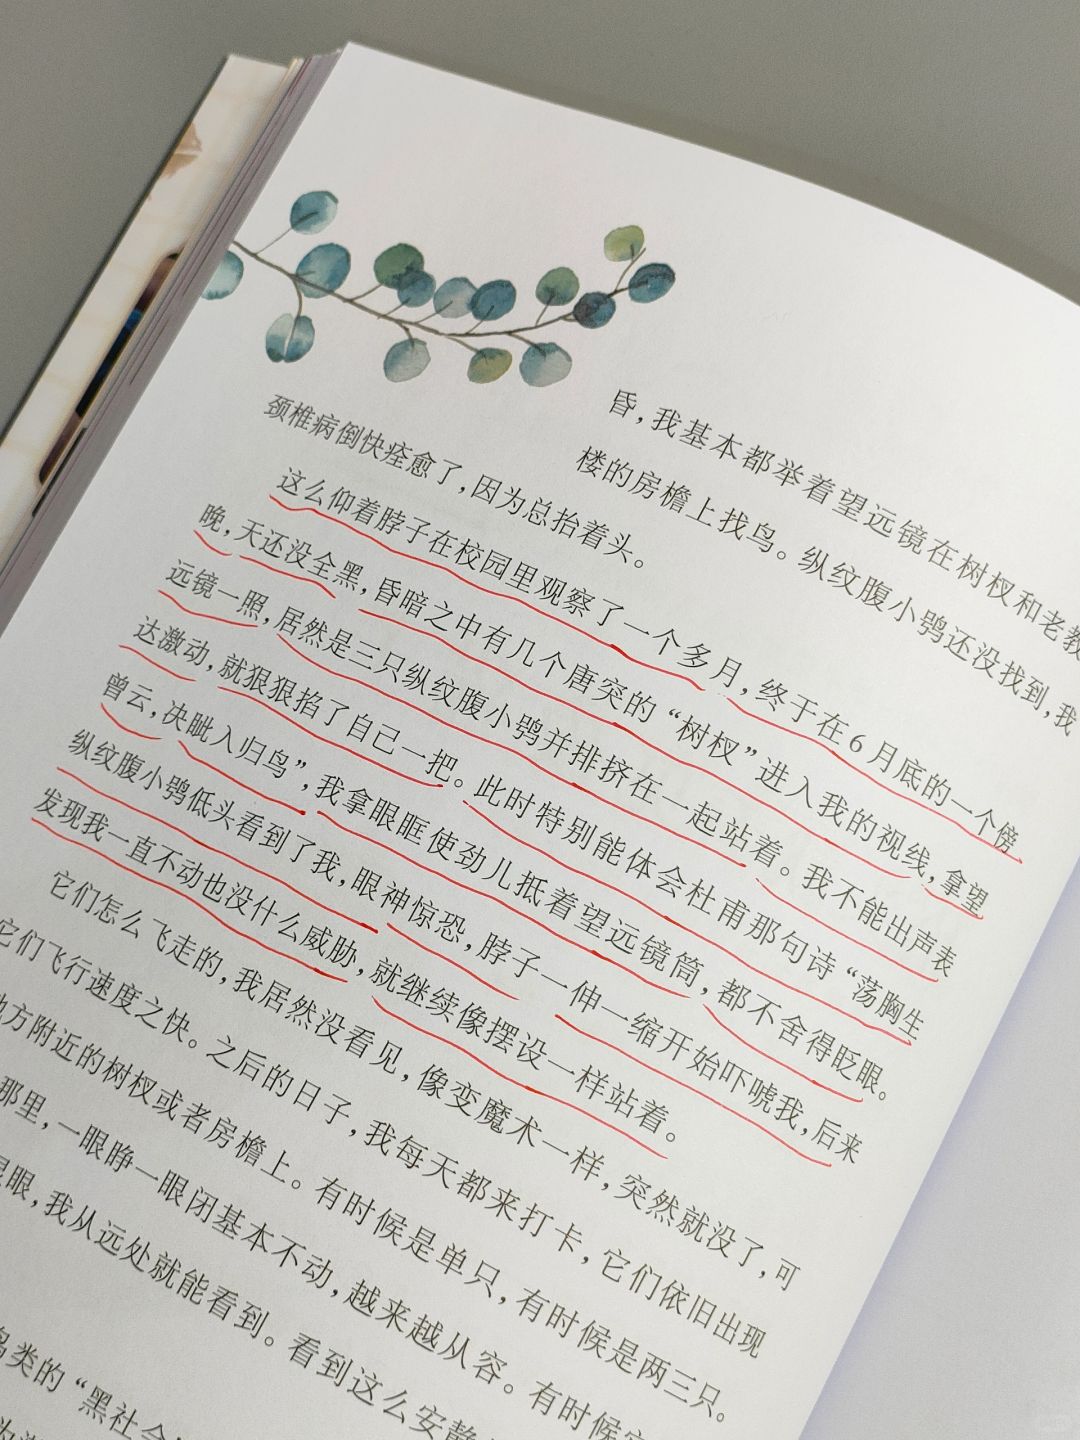 昏，我基本都举着望远镜在树杈和老教
楼的房檐上找鸟。纵纹腹小鸮还没找到，我
颈椎病倒快痊愈了，因为总抬着头。
这么仰着脖子在校园里观察了一个多月，终于在6月底的一个傍
晚，天还没全黑，昏暗之中有几个唐突的“树杈”进入我的视线，拿望
远镜一照，居然是三只纵纹腹小鸮并排挤在一起站着。我不能出声表
达激动，就狠狠掐了自己一把。此时特别能体会杜甫那句诗“荡胸生
曾云，决眦入归鸟”，我拿眼眶使劲儿抵着望远镜筒，都不舍得眨眼。
纵纹腹小鸮低头看到了我，眼神惊恐，脖子一伸一缩开始吓唬我，后来
发现我一直不动也没什么威胁，就继续像摆设一样站着。
它们怎么飞走的，我居然没看见，像变魔术一样，突然就没了，可
它们飞行速度之快。之后的日子，我每天都来打卡，它们依旧出现
方附近的树杈或者房檐上。有时候是单只，有时候是两三只。
那里，一眼睁一眼闭基本不动，越来越从容。有时候
眼，我从远处就能看到。看到这么安静
鸟类的“黑社会